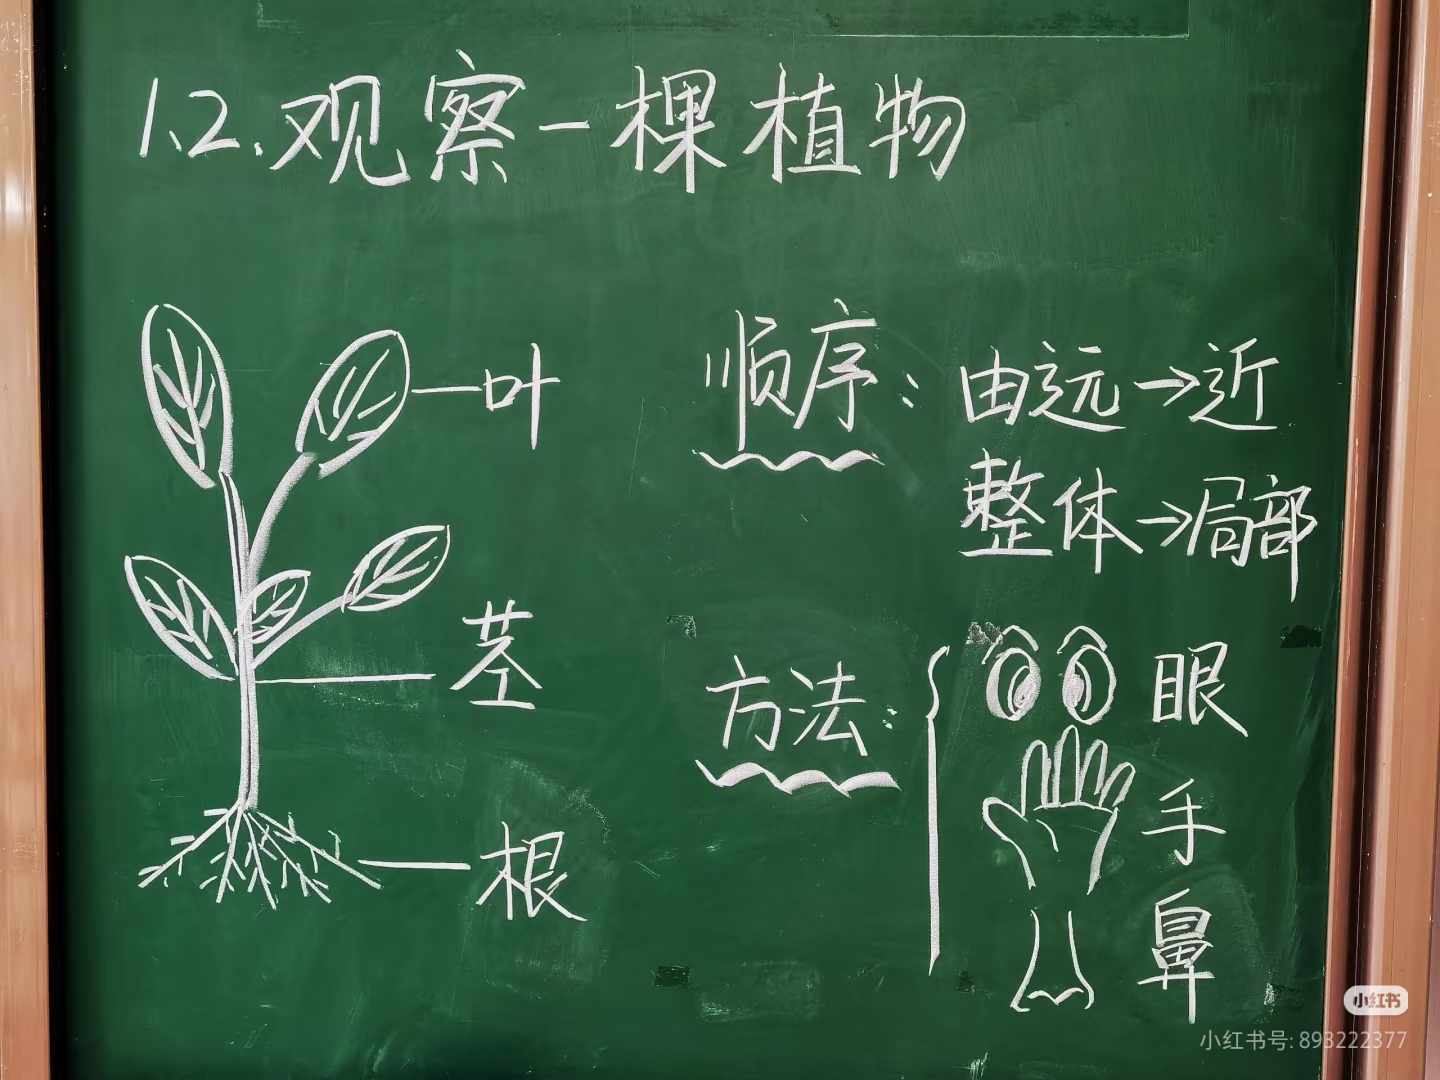 1.2.观察一棵植物
叶
茎
根
顺序：由远→近
整体→局部
方法：
眼
手
鼻
小红书
小红书号: 893222377